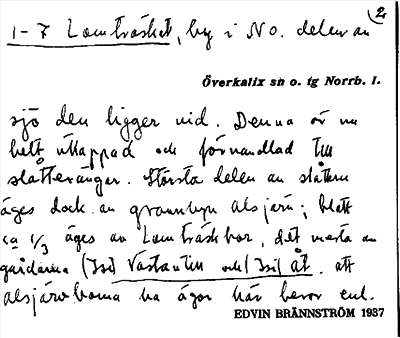 2
1-7 Lomträsket, by i NO. delen av
Överkalix sn o. tg Norrb. l.
sjö den ligger vid. Denna är nu
helt uttappad och förvandlad till
slåtterängar. Största delen av slåttern
äges dock av grannbyn Alsjärv; blott
ca 1/3 äges av Lomträskbor, det mesta av
gårdarna (Isi) Västantill och (Isi) åt. att
alsjärvborna ha ägor här beror enl.
EDVIN BRÄNNSTRÖM 1937